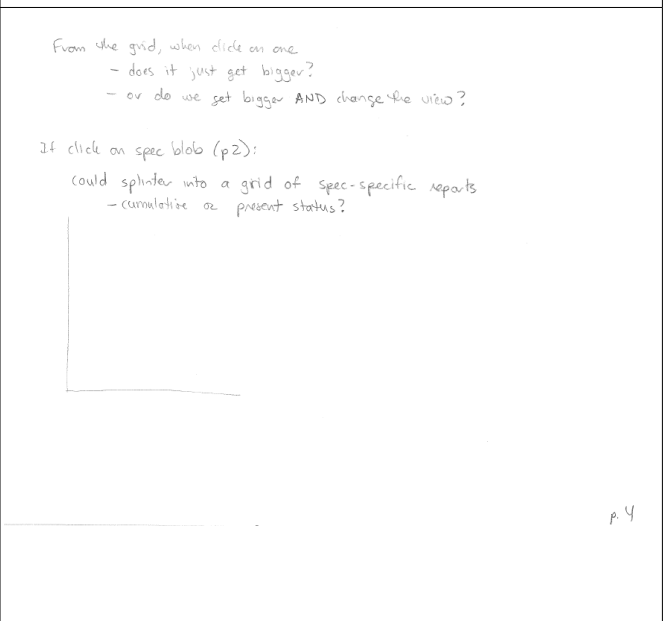 From the grid, when click on one
- does it just get bigger?
- or do we get bigger AND change the view?
If click on spec blob (p2):
could splinter into a grid of spec-specific reports
- cumulative or present status?
p. 4